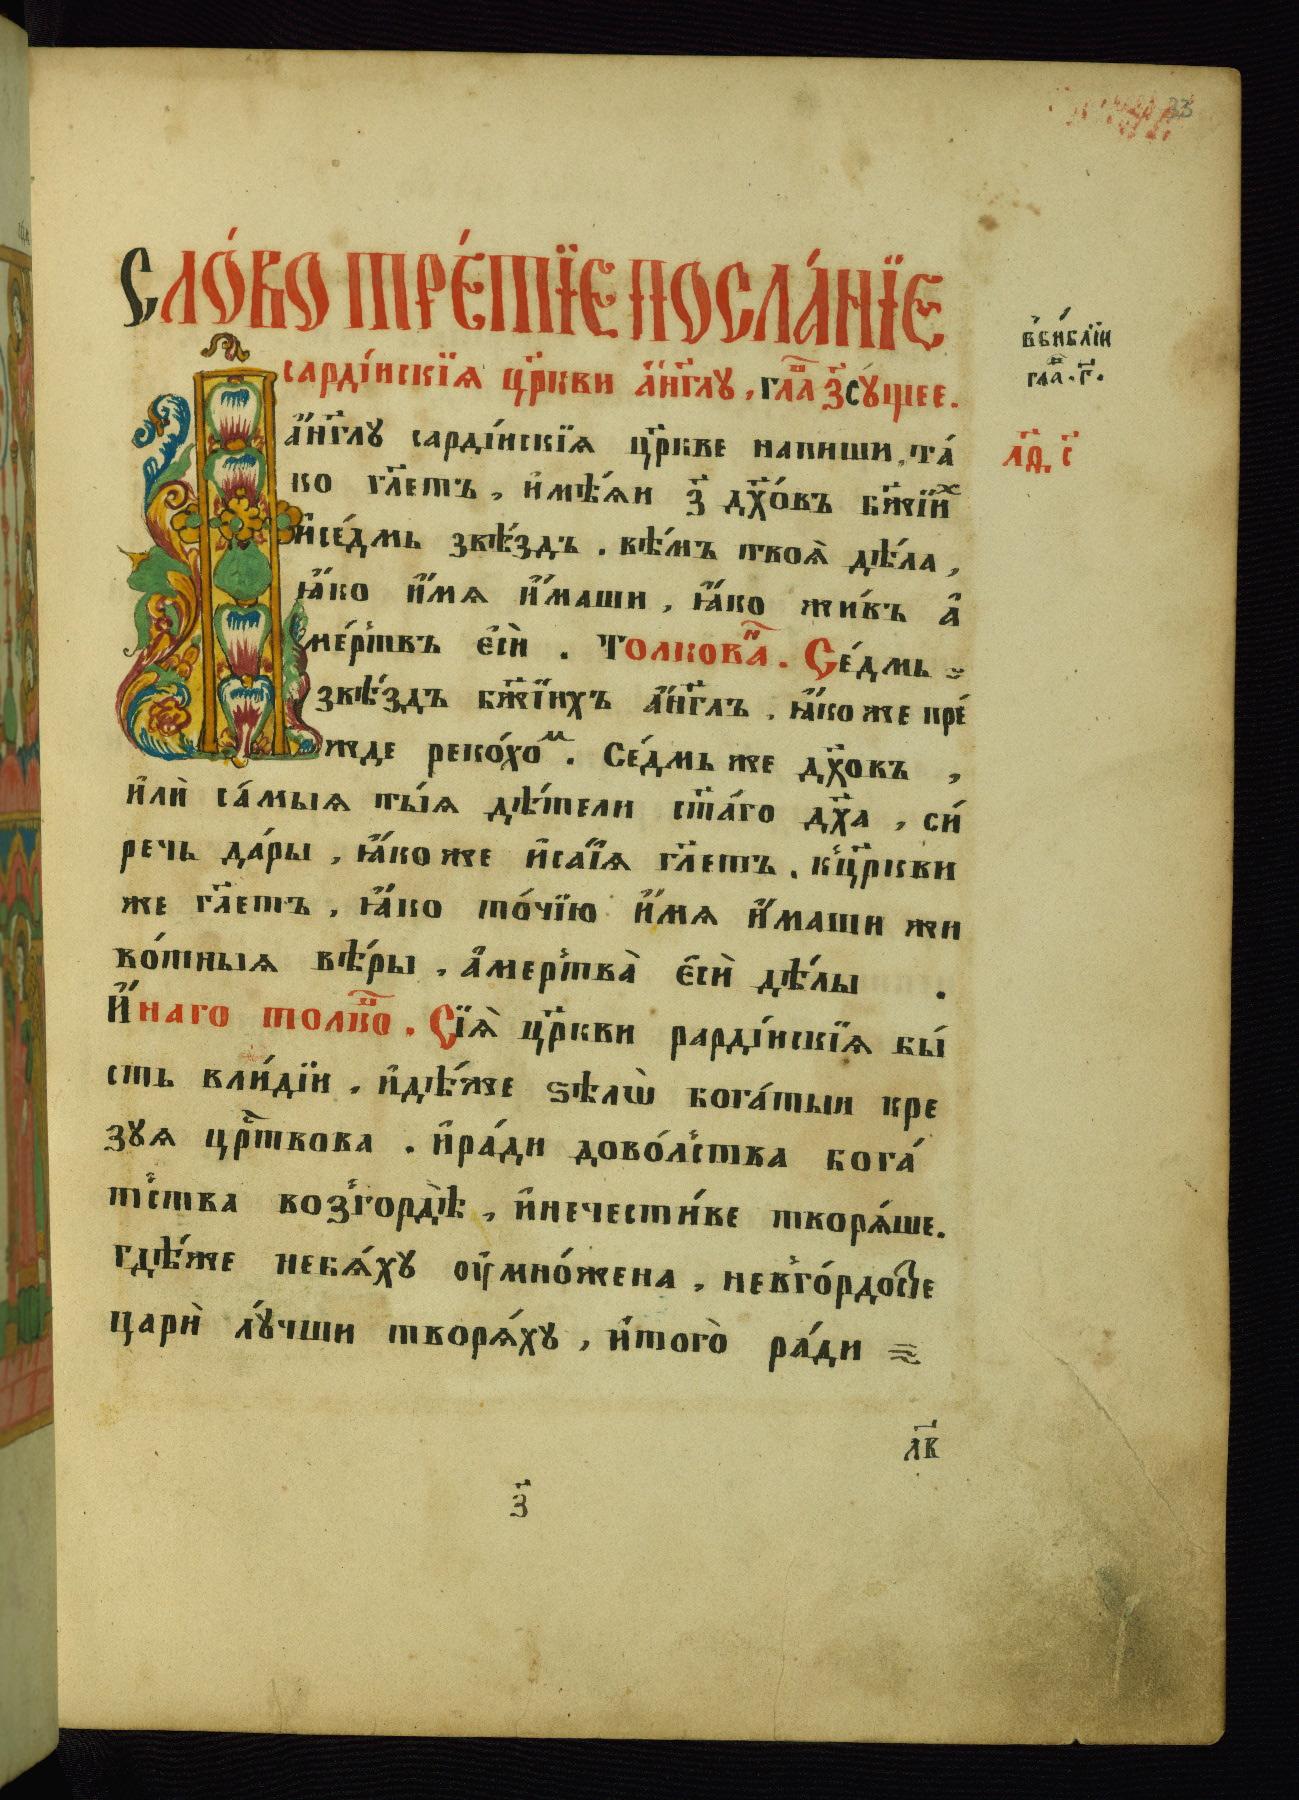 33
Сло́во тре́тїе посла́нїе
сарді́искїѧ цр҃кви а҆́нг҃лу, гла҃ з҃ су́щее.
в҆би́блїи
гла҃. г҃.
а҆́нг҃лу сарді́искїѧ цр҃кве напиши, та́
лѳ҃, с҃
ко гл҃етъ, и҆мѣ́ѧи з҃ дх҃о́въ бж҃їих
и҆се́дмь звѣ́здъ. вѣ́мъ твоѧ̀ дѣ́ла,
ꙗ҆́ко и҆́мѧ и҆́маши, ꙗ҆́ко живъ а҆
ме́ртвъ є҆сѝ. Толкова҃. Се́дмь
звѣ́здъ бж҃їихъ а҆́нг҃лъ, ꙗ҆́коже пре́
жде реко́хом. Се́дмь же дх҃овъ,
и҆лѝ са́мыѧ ты́ѧ дѣ́тели ст҃а́го дх҃а, си́
речь да́ры, ꙗ҆́коже и҆са́їѧ гл҃етъ. кцр҃кви
же гл҃етъ, ꙗ҆́ко то́чїю и҆́мѧ и҆́маши жи
во́тныѧ вѣ́ры, а҆мертва̀ є҆сѝ дѣ́лы.
И҆́наго толко҃. Сїѧ̀ цр҃кви рарді́искїѧ бы́
сть вли́дїи, и҆дѣ́же ѕѣлѡ̀ бога́тыи кре
зуѧ цр҃твова. и҆ра́ди дово́лства бога́
тства возгордѣ̀, и҆нечести́ве творѧ́ше.
гдѣ́же небѧ́ху оу҆мно́жена, невго́рдосте
царѝ лу́чши творѧ́ху, и҆того̀ ра́ди
лв҃
з҃